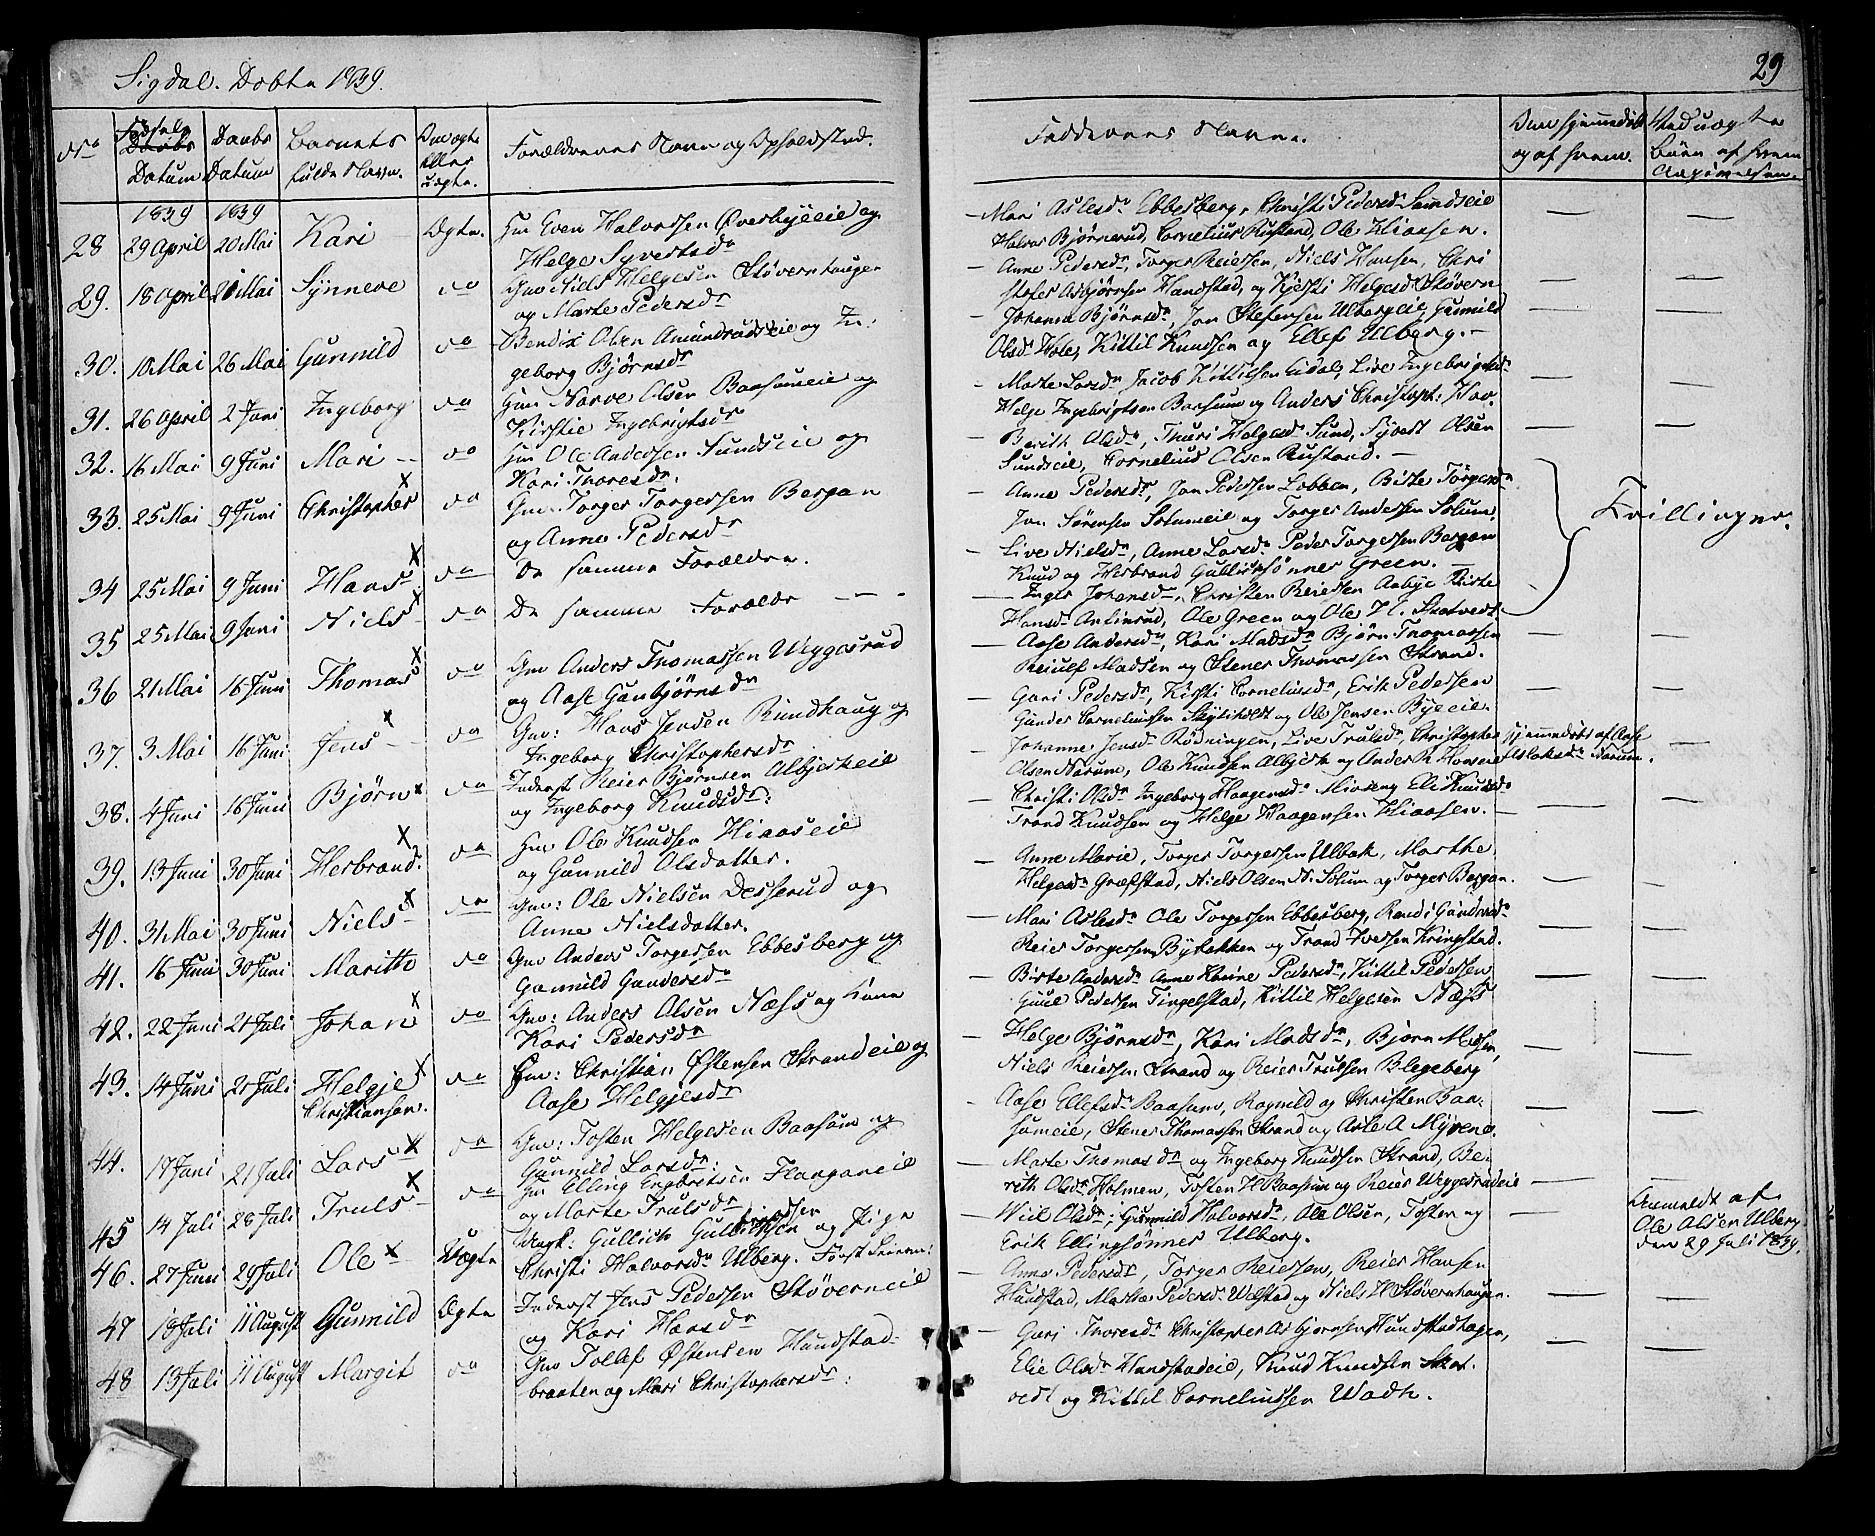 Sigdal. Døbte 1839.
29
No
Fødsels Datum
Daabs Datum
Barnets fulde Navn.
Om ægte eller uægte.
Forældrenes Navn og Opholdsted.
Faddernes Navne.
Om hjemmedøbt og af hvem.
Ved uægte Børn af hvem
1839 1839
28 29 April 20 Mai Kari Ægte. Gm Even Halvorsen Øvrebyeeie og
Helge Syvertsdr
— Mari Aslesdr Ebbesberg, Christi Pedersdr Sandseie
Halvor Bjørnerud, Cornelius Rustand, Ole Hiaasen.
29. 18 April 20 Mai Synneve do Gm Niels Helgesen Støvernhaugen
og Marte Pedersdr
— Anne Pedersdr, Torger Reiersen, Niels Hansen, Chri
stofer Asbjørnsen Hundstad, og Kjersti Helgesdr Støvern
30. 10 Mai 26 Mai Gunnild do Bendix Olsen Amundrudseie og In:
geborg Bjørnsdr
— Johanna Bjørnsdr, Jon Stefensen Ulbergeie Gunnild
Olsdr Hole, Kittil Knudsen og Ellef Ulberg. —
31. 26 April 2 Juni Ingeborg do Gm Narve Olsen Baasumeie og
Kirstie Ingebrigtsdr
— Marte Larsdr Jacob Kittilsen Eidal, Live Ingebrigtsdr
Helge Ingebrigtsen Baasum og Anders Christoph: Hov.
32. 16 Mai 9 Juni Mari — do Gm Ole Andersen Sundseie og
Kari Thoresdr.
— Berith Olsdr, Thuri Helgesdr Sund, Syvert Olsen
Sundseie, Cornelius Olsen Rustand. —
33. 25 Mai 9 Juni Christopher x do Gm. Torger Torgersen Bergan
og Anne Pedersdr
— Anne Pedersdr, Jon Pedersen Lobben, Birte Torgersdr
Jon Sørensen Solumeie og Torger Andersen Solum.
Trillinger.
34 25 Mai 9 Juni Hans x do De samme Forældre.
— Live Nielsdr, Anne Larsdr Peder Torgersen Bergan
Knud og Herbrand Gulliksønner Green. —
35 25 Mai 9 Juni Niels x do De samme Forældr — — -
— Inger Johansdr, Christen Reiersen Aabye Birte
Hansdr Anlinrud, Ole Green og Ole H. Skatvedt.
36 21 Mai 16 Juni Thomas x do Gm Anders Thomassen Weggesrud
og Aase Gunbjørnsdr
— Aase Andersdr, Kari Madsdr Bjørn Thomassen
Reiulf Madsen og Stener Thomassen Strand.
37. 3 Mai 16 Juni Jens x do Gm: Hans Jensen Rundhaug og
Ingeborg Christophersdr
— Gari Pedersdr, Kirsti Corneliusdr, Erik Pedersen
Gunder Corneliussen og Ole Jensen Byeeie.
38. 4 Juni 16 Juni Bjørn x do Inderst Reier Bjørnsen Albjerkeie
og Ingeborg Knudsdr:
— Johanne Jensdr Rødningen, Live Trulsdr, Christopher
Olsen Narum, Ole Knudsen Albjerk og Anders R Hansen
hjemmedøbt af Aase Aslaksdr Narum.
39. 13 Juni 30 Juni Herbrand. x do Gm Ole Knudsen Hiaaseie
og Gunnild Olsdatter.
— Christi Olsdr Ingeborg Haagensdr Hiaas og Eli Knudsdr
Trond Knudsen og Helge Haagensen Hiaasen. —
40. 31 Mai 30 Juni Niels x do Gm: Ole Nielsen Desserud og
Anne Nielsdatter.
— Anne Marie, Torger Torgersen Ulbak, Marthe
Helgesdr Græsstad, Niels Olsen N: Solum og Torger Bergan.
41. 16 Juni 30 Juni Marithe do Gm Anders Torgersen Ebbesberg og
Gunnild Gundersdr
— Mari Aslesdr Ole Torgersen Ebbesberg, Randi Gundersdr
Reier Torgersen Byebakken og Trond Iversen Kringstad.
42. 22 Juni 21 Juli Johan x do Gm: Anders Olsen Næss og Kone
Kari Pedersdr
— Birte Andersdr Anne Karine Pedersdr, Kittil Pedersen
Guul Pedersen Tingelstad, Kittil Helgesen Næss
43. 14 Juni 21 Juli Helgje x Christiansen. do Gm: Christian Østensen Strandeie og
Aase Helgjesdr
— Helge Bjørnsdr, Kari Madsdr, Bjørn Madsen,
Niels Reiersen Strand og Reier Trulsen Blegeberg
44. 17 Juni 21 Juli Lars x do Gm: Tosten Helgesen Baasum og
Gunnild Larsdr:
— Aase Ellefsdr Baasum, Ragnild og Christen Baa-
sumeie, Stener Thomassen Strand og Asle A Myrene.
45 14 Juli 28 Juli Truls x do Gm Elling Engbretsen Flaaganeie
og Marte Trulsdr
— Marte Thomasdr og Ingeborg Knudsen Strand, Be-
rith Olsdr Holmen, Tosten H Baasum og Reier Weggesrudeie
46. 27 Juni 29 Juli Ole x Uægte Ungk: Gullich Gulbrandsen og Pige
Christi Halvorsdr Ulberg. Først Leierm:
— Wiil Olsdr; Gunnild Halvorsdr, Ole Olsen, Tosten og
Erik Ellingsønner Ulberg.
Anmeldt af
Ole Olsen Ulberg
den 29 Juli 1839.
47 18 Juli 11 August Gunnild Ægte Inderst Jens Pedersen Støverneie
og Kari Hansdr
— Anne Pedersdr, Torger Reiersen, Reier Hansen
Hundstad, Marthe Pedersdr Wolstad og Niels H Støvernhaugen.
48 13 Juli 11 August Margit do Gm Tollef Østensen Hundstad-
braaten og Mari Christophersdr:
— Guri Thoresdr Christopher Asbjørnsen Hundstadhagen,
Elie Olsdr Hundstadeie, Knud Knudsen Skat.
vedt og Kittil Corneliussen Wadh.